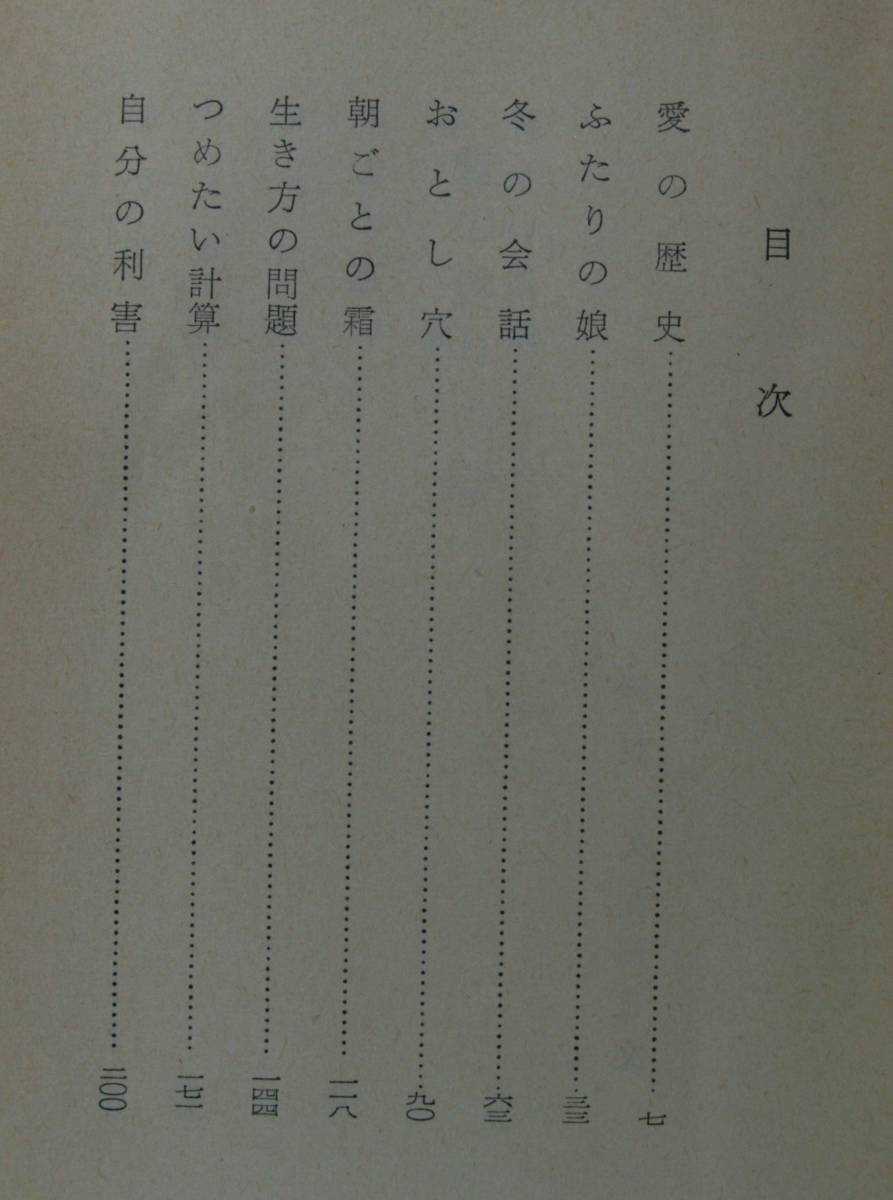 目次
愛の歴史……七
ふたりの娘……三三
冬の会話……六三
おとし穴……九〇
朝ごとの霜……一一八
生き方の問題……一四四
つめたい計算……一七一
自分の利害……二〇〇